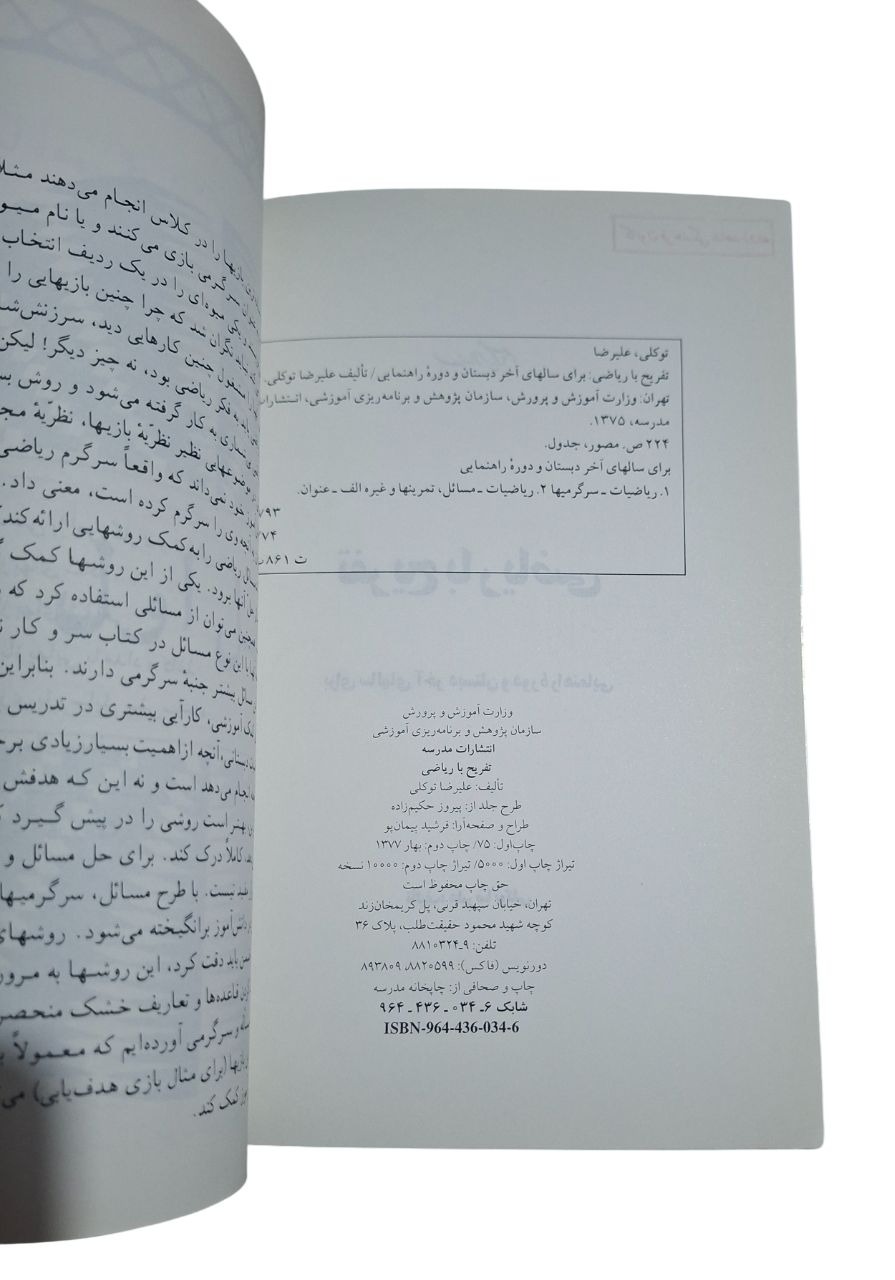 توکلی، علیرضا
تفریح با ریاضی: برای سالهای آخر دبستان و دورهٔ راهنمایی/ تألیف علیرضا توکلی.
تهران: وزارت آموزش و پرورش، سازمان پژوهش و برنامه‌ریزی آموزشی، انتشارات
مدرسه، ۱۳۷۵.
۲۲۴ ص. مصور، جدول.
برای سالهای آخر دبستان و دورهٔ راهنمایی
۱. ریاضیات ـ سرگرمیها ۲. ریاضیات ـ مسائل، تمرینها و غیره الف ـ عنوان.
وزارت آموزش و پرورش
سازمان پژوهش و برنامه‌ریزی آموزشی
انتشارات مدرسه
تفریح با ریاضی
تألیف: علیرضا توکلی
طرح جلد از: پیروز حکیم‌زاده
طراح و صفحه‌آرا: فرشید پیمان‌پو
چاپ‌اول: ۷۵/ چاپ دوم: بهار ۱۳۷۷
تیراژ چاپ اول: ۵۰۰۰/ تیراژ چاپ دوم: ۱۰۰۰۰ نسخه
حق چاپ محفوظ است
تهران، خیابان سپهبد قرنی، پل کریمخان‌زند
کوچه شهید محمود حقیقت‌طلب، پلاک ۳۶
تلفن: ۹ـ۸۸۱۰۳۲۴
دورنویس (فاکس): ۸۸۲۰۵۹۹، ۸۹۳۸۰۹
چاپ و صحافی از: چاپخانه مدرسه
شابک ۶ـ ۰۳۴ ـ ۴۳۶ ـ ۹۶۴
ISBN-964-436-034-6
بازیها را در کلاس انجام می‌دهند مثلا
سرگرمی بازی می‌کنند و یا نام
میوه‌ای را در یک ردیف انتخاب
نگران شد که چرا چنین بازیهایی را
مشغول چنین کارهایی دید، سرزنش
به فکر ریاضی بود، نه چیز دیگر! لیکن
به کار گرفته می‌شود و روش
موضوعهای نظیر نظریّهٔ بازیها، نظریّهٔ
خود نمی‌داند که واقعاً سرگرم ریاضی
آنچه وی را سرگرم کرده است، معنی داد.
ریاضی را به کمک روشهایی ارائه کند
آنها برود. یکی از این روشها کمک
می‌توان از مسائلی استفاده کرد که
با این نوع مسائل در کتاب سر و کار
مسائل بیشتر جنبهٔ سرگرمی دارند. بنابراین
آموزشی، کارآیی بیشتری در تدریس
دبستانی، آنچه از اهمیت بسیارزیادی
انجام می‌دهد است و نه این که هدفش
بهتر است روشی را در پیش گیرد
کاملاً درک کند. برای حل مسائل و
نیست. با طرح مسائل، سرگرمیها
دانش‌آموز برانگیخته می‌شود. روشهای
باید دقت کرد، این روشها به مرور
قاعده‌ها و تعاریف خشک منحصر
و سرگرمی آورده‌ایم که معمولاً
بازیها (برای مثال بازی هدف‌یابی) می
کمک کند.